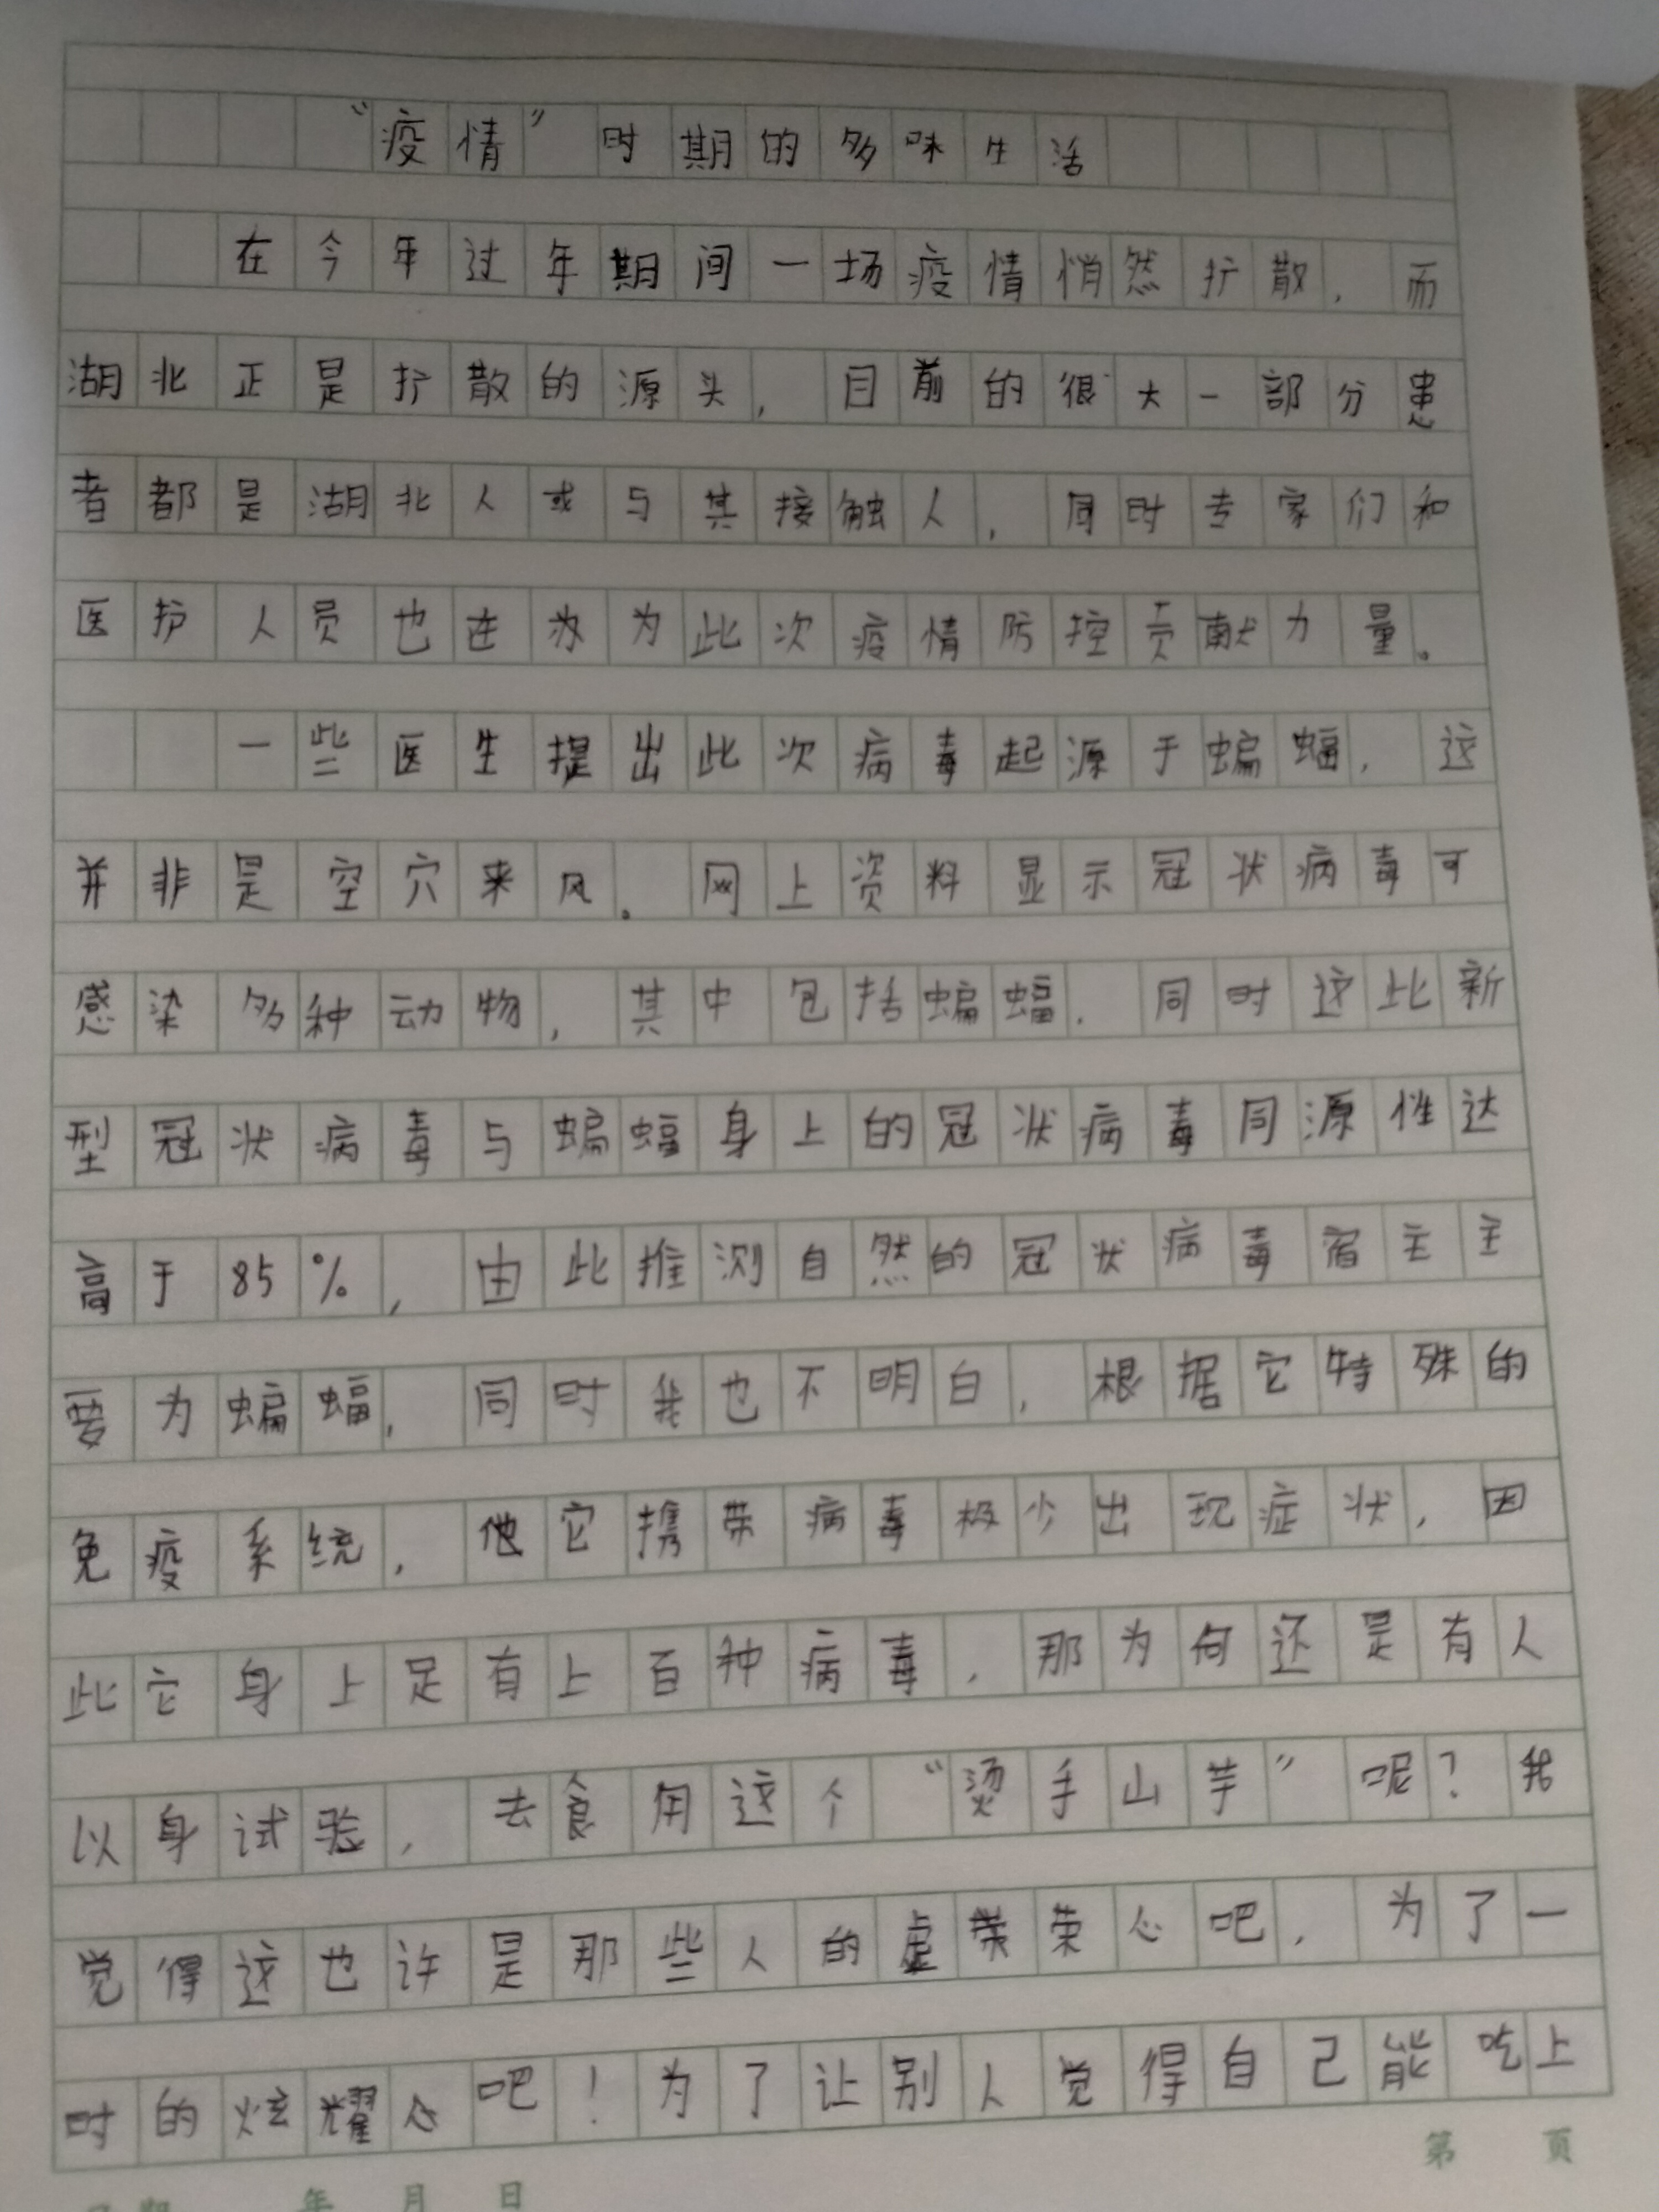 “疫情”时期的多味生活
在今年过年期间一场疫情悄然扩散，而
湖北正是扩散的源头，目前的很大一部分患
者都是湖北人或与其接触人，同时专家们和
医护人员也在为此次疫情防控贡献力量。
一些医生提出此次病毒起源于蝙蝠，这
并非是空穴来风。网上资料显示冠状病毒可
感染多种动物，其中包括蝙蝠．同时这此新
型冠状病毒与蝙蝠身上的冠状病毒同源性达
高于85%，由此推测自然的冠状病毒宿主主
要为蝙蝠，同时我也不明白，根据它特殊的
免疫系统，他它携带病毒极少出现症状，因
此它身上足有上百种病毒，那为何还是有人
以身试验，去食用这个“烫手山芋”呢？我
觉得这也许是那些人的虚荣心吧，为了一
时的炫耀心吧！为了让别人觉得自己能吃上
第 页
年 月 日